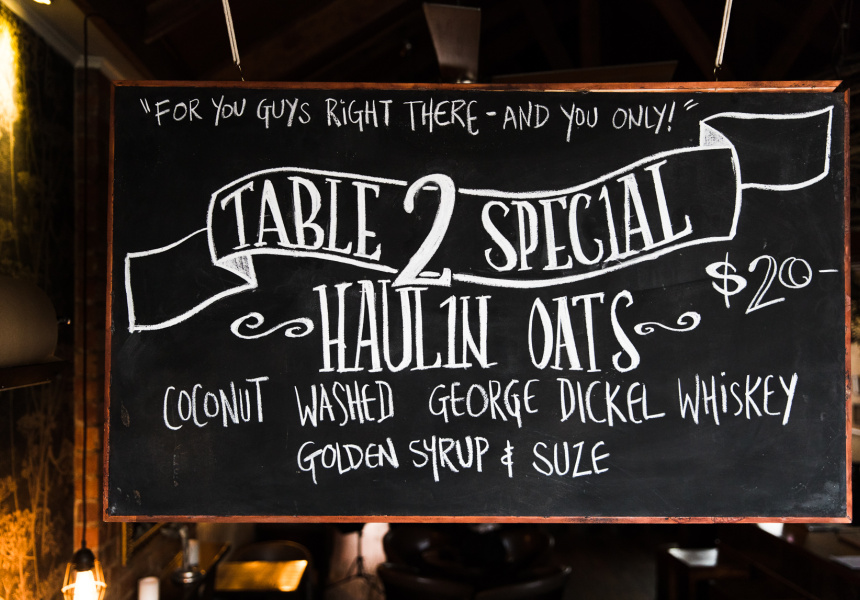 "FOR YOU GUYS RiGHT THERE - AND YOU ONLY!"
TABLE 2 SPECIAL
$20-
HAULIN OATS
COCONUT WASHED GEORGE DICKEL WHiSKEY
GOLDEN SYRUP & SUZE